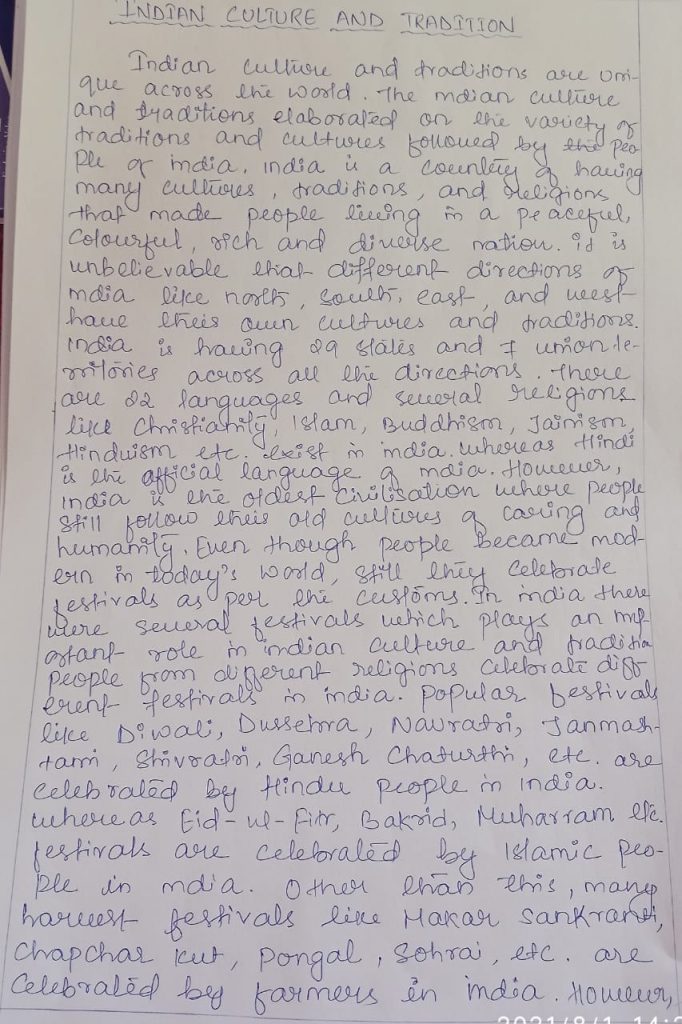 INDIAN CULTURE AND TRADITION
Indian culture and traditions are uni-
que across the world. The indian culture
and traditions elaborated on the variety of
traditions and cultures followed by the peo
ple of india. india is a country of having
many cultures, traditions, and religions
that made people living in a peaceful,
colourful, rich and diverse nation. it is
unbelievable that different directions of
india like north, south, east, and west
have their own cultures and traditions.
india is having 29 states and 7 union te-
rritories across all the directions. There
are 22 languages and several religions
like Christianity, Islam, Buddhism, Jainism,
Hinduism etc. exist in india. whereas Hindi
is the official language of india. However,
india is the oldest civilisation where people
still follow their old cultures of caring and
humanity. Even though people became mod-
ern in today's world, still they celebrate
festivals as per the customs. In india there
were several festivals which plays an imp
ortant role in indian culture and traditio
people from different religions celebrate diff
erent festivals in india. popular festivals
like Diwali, Dussehra, Navratri, Janmash-
tami, Shivratri, Ganesh Chaturthi, etc. are
celebrated by Hindu people in India.
whereas Eid-ul-Fitr, Bakrid, Muharram etc.
festivals are celebrated by Islamic peo-
ple in india. Other than this, many
harvest festivals like Makar Sankranti,
Chapchar Kut, Pongal, Sohrai, etc. are
celebrated by farmers in india. However,
2021/8/1 14:2